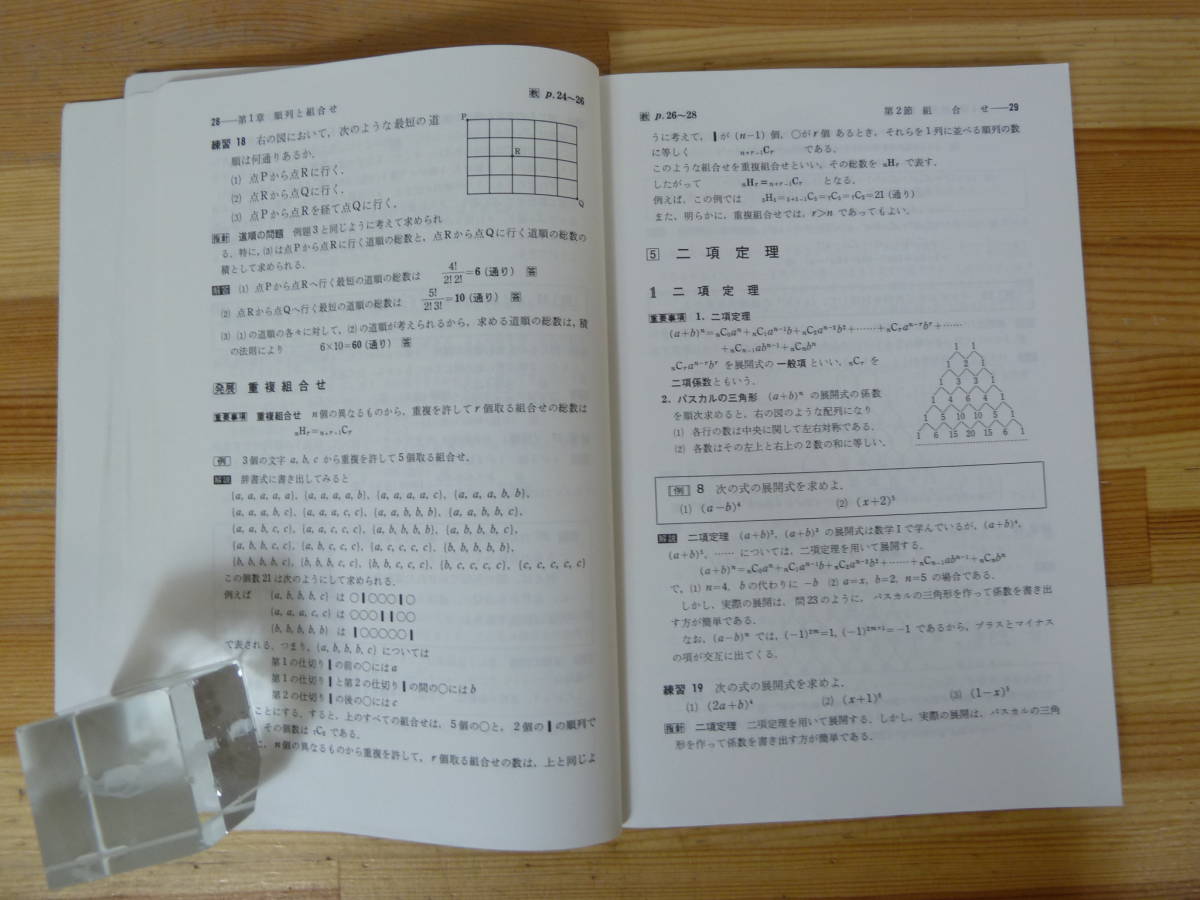 28——第1章 順列と組合せ
教 p.24〜26
練習 18 右の図において,次のような最短の道
順は何通りあるか.
(1) 点Pから点Rに行く.
(2) 点Rから点Qに行く.
(3) 点Pから点Rを経て点Qに行く.
P
R
Q
指針 道順の問題 例題3と同じように考えて求められ
る.特に,(3)は点Pから点Rに行く道順の総数と,点Rから点Qに行く道順の総数の
積として求められる.
解答 (1) 点Pから点Rへ行く最短の道順の総数は 4!/2!2!=6(通り) 答
(2) 点Rから点Qへ行く最短の道順の総数は 5!/2!3!=10(通り) 答
(3) (1)の道順の各々に対して,(2)の道順が考えられるから,求める道順の総数は,積
の法則により 6×10=60(通り) 答
発展 重複組合せ
重要事項 重複組合せ n個の異なるものから,重複を許してr個取る組合せの総数は
nHr=n+r-1Cr
例 3個の文字a, b, cから重複を許して5個取る組合せ.
解説 辞書式に書き出してみると
{a, a, a, a, a}, {a, a, a, a, b}, {a, a, a, a, c}, {a, a, a, b, b},
{a, a, a, b, c}, {a, a, a, c, c}, {a, a, b, b, b}, {a, a, b, b, c},
{a, a, b, c, c}, {a, a, c, c, c}, {a, b, b, b, b}, {a, b, b, b, c},
{a, b, b, c, c}, {a, b, c, c, c}, {a, c, c, c, c}, {b, b, b, b, b},
{b, b, b, b, c}, {b, b, b, c, c}, {b, b, c, c, c}, {b, c, c, c, c}, {c, c, c, c, c}
この個数21は次のようにして求められる.
例えば {a, b, b, b, c} は ○|○○○|○
{a, a, a, c, c} は ○○○||○○
{b, b, b, b, b} は |○○○○○|
で表される.つまり,{a, b, b, b, c} については
第1の仕切り|の前の○にはa
第1の仕切り|と第2の仕切り|の間の○にはb
第2の仕切り|の後の○にはc
ことにする.すると,上のすべての組合せは,5個の○と,2個の|の順列で
その個数は 7C5 である.
n個の異なるものから重複を許して,r個取る組合せの数は,上と同じよ
教 p.26〜28
第2節 組 合 せ——29
うに考えて,|が (n−1) 個,○がr個 あるとき,それらを1列に並べる順列の数
に等しく n+r-1Cr である.
このような組合せを重複組合せといい,その総数を nHr で表す.
したがって nHr=n+r-1Cr となる.
例えば,この例では 3H5=3+5-1C5=7C5=7C2=21(通り)
また,明らかに,重複組合せでは,r>n であってもよい.
5 二項定理
1 二項定理
重要事項 1. 二項定理
(a+b)ⁿ=nC0aⁿ+nC1aⁿ⁻¹b+nC2aⁿ⁻²b²+……+nCraⁿ⁻ʳbʳ+……
+nCn-1abⁿ⁻¹+nCnbⁿ
nCraⁿ⁻ʳbʳ を展開式の一般項といい,nCr を
二項係数ともいう.
2. パスカルの三角形 (a+b)ⁿ の展開式の係数
を順次求めると,右の図のような配列になり
(1) 各行の数は中央に関して左右対称である.
(2) 各数はその左上と右上の2数の和に等しい.
1 1
1 2 1
1 3 3 1
1 4 6 4 1
1 5 10 10 5 1
1 6 15 20 15 6 1
例 8 次の式の展開式を求めよ.
(1) (a−b)⁴ (2) (x+2)⁵
解説 二項定理 (a+b)², (a+b)³ の展開式は数学Ⅰで学んでいるが,(a+b)⁴,
(a+b)⁵, …… については,二項定理を用いて展開する.
(a+b)ⁿ=nC0aⁿ+nC1aⁿ⁻¹b+nC2aⁿ⁻²b²+……+nCn-1abⁿ⁻¹+nCnbⁿ
で,(1) n=4, bの代わりに −b (2) a=x, b=2, n=5 の場合である.
しかし,実際の展開は,問23のように,パスカルの三角形を作って係数を書き出
す方が簡単である.
なお,(a−b)ⁿ では,(−1)²ᵐ=1, (−1)²ᵐ⁺¹=−1 であるから,プラスとマイナス
の項が交互に出てくる.
練習 19 次の式の展開式を求めよ.
(1) (2a+b)⁴ (2) (x+1)⁶ (3) (1−x)⁵
指針 二項定理 二項定理を用いて展開する.しかし,実際の展開は,パスカルの三角
形を作って係数を書き出す方が簡単である.